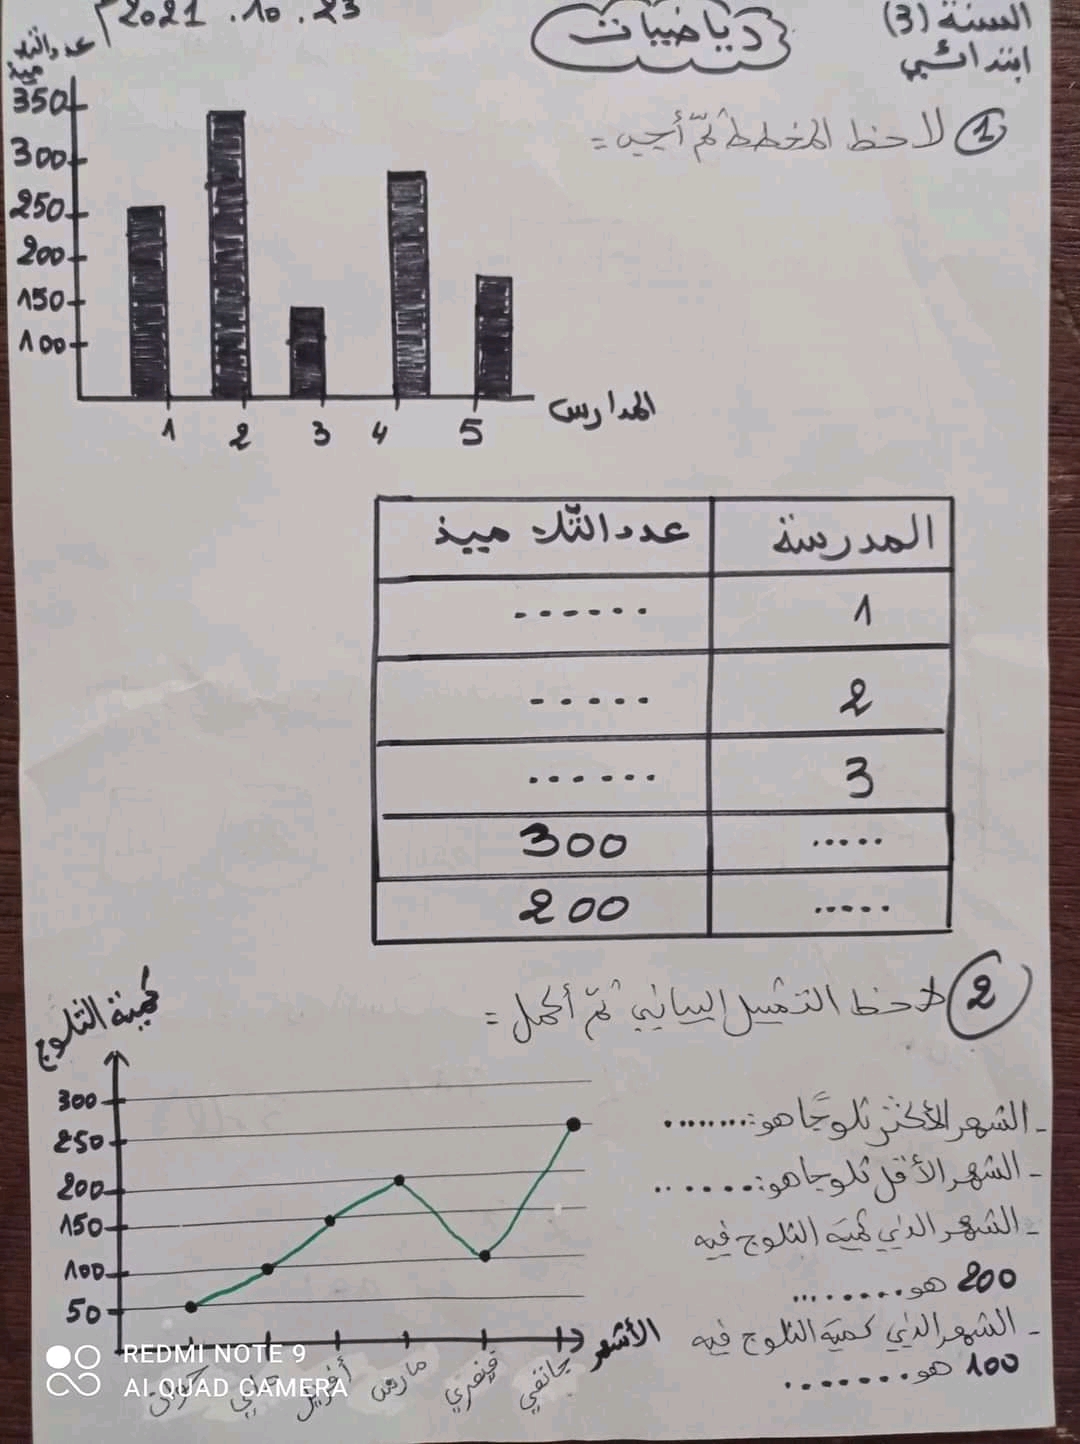 السنة (3)
ابتدائي
رياضيات
2021 . 10 . 23
① لاحظ المخطط ثمّ أجيب =
عدد التلا
ميذ
350
300
250
200
150
100
1 2 3 4 5
المدارس
المدرسة عدد التّلاميذ
1 ......
2 .....
3 ......
..... 300
..... 200
② لاحظ التمثيل البياني ثمّ أكمل =
كميّة الثلوج
300
250
200
150
100
50
جوان ماي أفريل مارس فيفري جانفي
الأشهر
- الشهر الأكثر ثلوجًا هو: ........
- الشهر الأقل ثلوجا هو: .......
- الشهر الذي كمية الثلوج فيه
200 هو ........
- الشهر الذي كمية الثلوج فيه
100 هو ........
REDMI NOTE 9
AI QUAD CAMERA